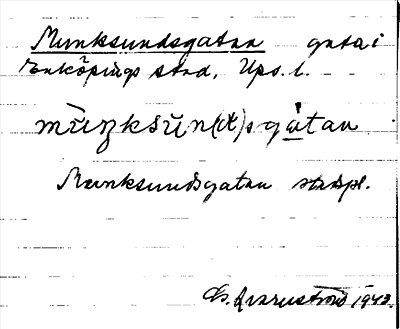 Munksundsgatan gata i
Enköpings stad, Ups. l.
mùŋksùn(d)sgàtan
Munksundsgatan stadspl.
1943.